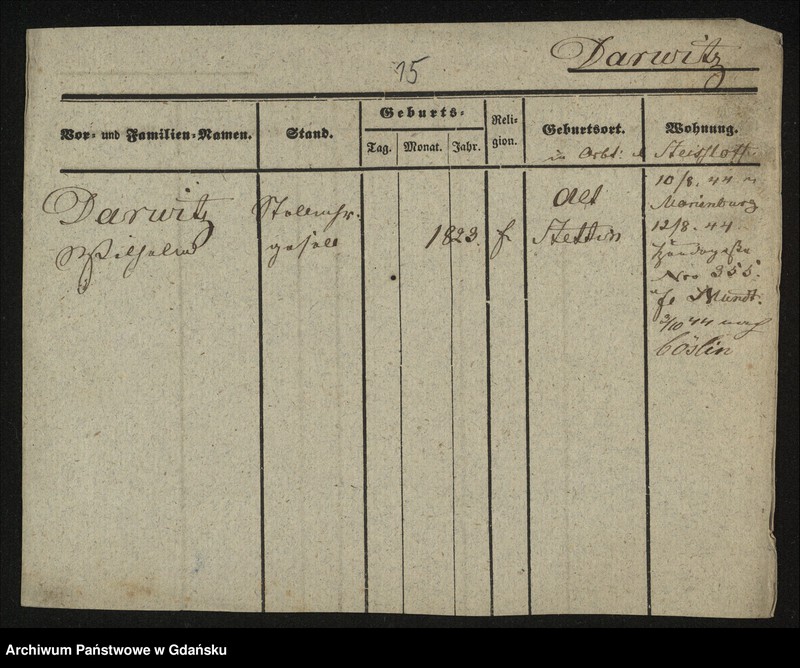 15
Darwitz
Vor- und Familien-Namen.
Stand.
Geburts-
Tag.
Monat.
Jahr.
Reli-
gion.
Geburtsort.
Wohnung.
in Arbt:
Darwitz
Wilhelm
gesell
1823.
Alt
Stettin
10/8. 44
Marienburg
12/8. 44
Nro 355.
Mundt.
2/10 44 nach
Cöslin
Archiwum Państwowe w Gdańsku